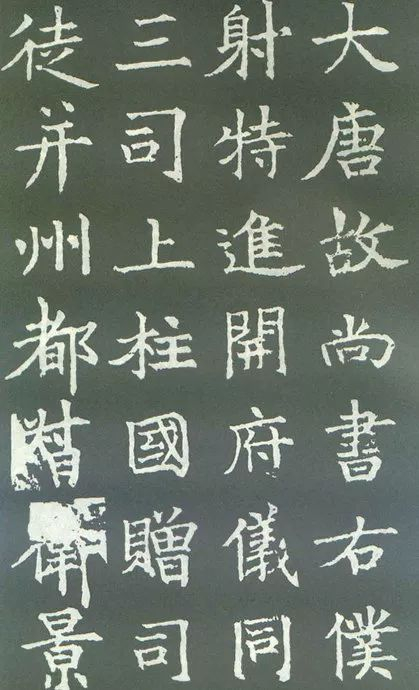 大唐故尚書右僕
射特進開府儀同
三司上柱國贈司
徒并州都督衛景